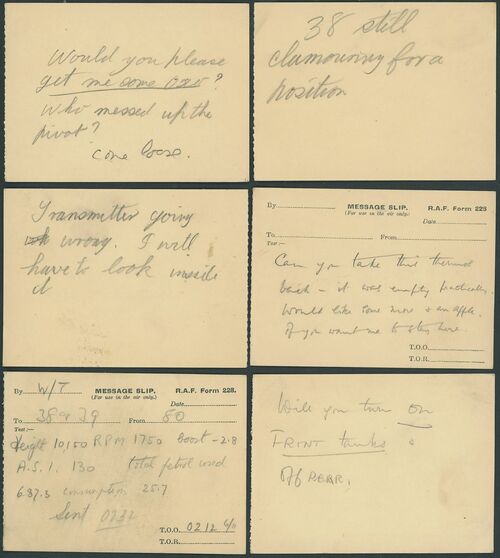 Would you please
get me some oxo?
Who messed up the
pivot?
Came loose.
38 still
clamouring for a
position
Transmitter going
wrong. I will
have to look inside
it
By
MESSAGE SLIP.
R.A.F. Form 228
(For use in the air only.)
Date
To
From
Text:—
Can you take this thermos
back - it was empty practically.
Would like some more & an apple.
If you want me to stay here.
T.O.O.
T.O.R.
By W/T
MESSAGE SLIP.
R.A.F. Form 228.
(For use in the air only.)
Date
To 38 & 29
From 80
Text:—
Height 10,150 RPM 1750 boost -2.8
A.S.I. 130 total petrol used
687.3 consumption 25.7
Sent 0232
T.O.O. 0212
T.O.R.
Will you turn on
FRONT tanks &
Off REAR.